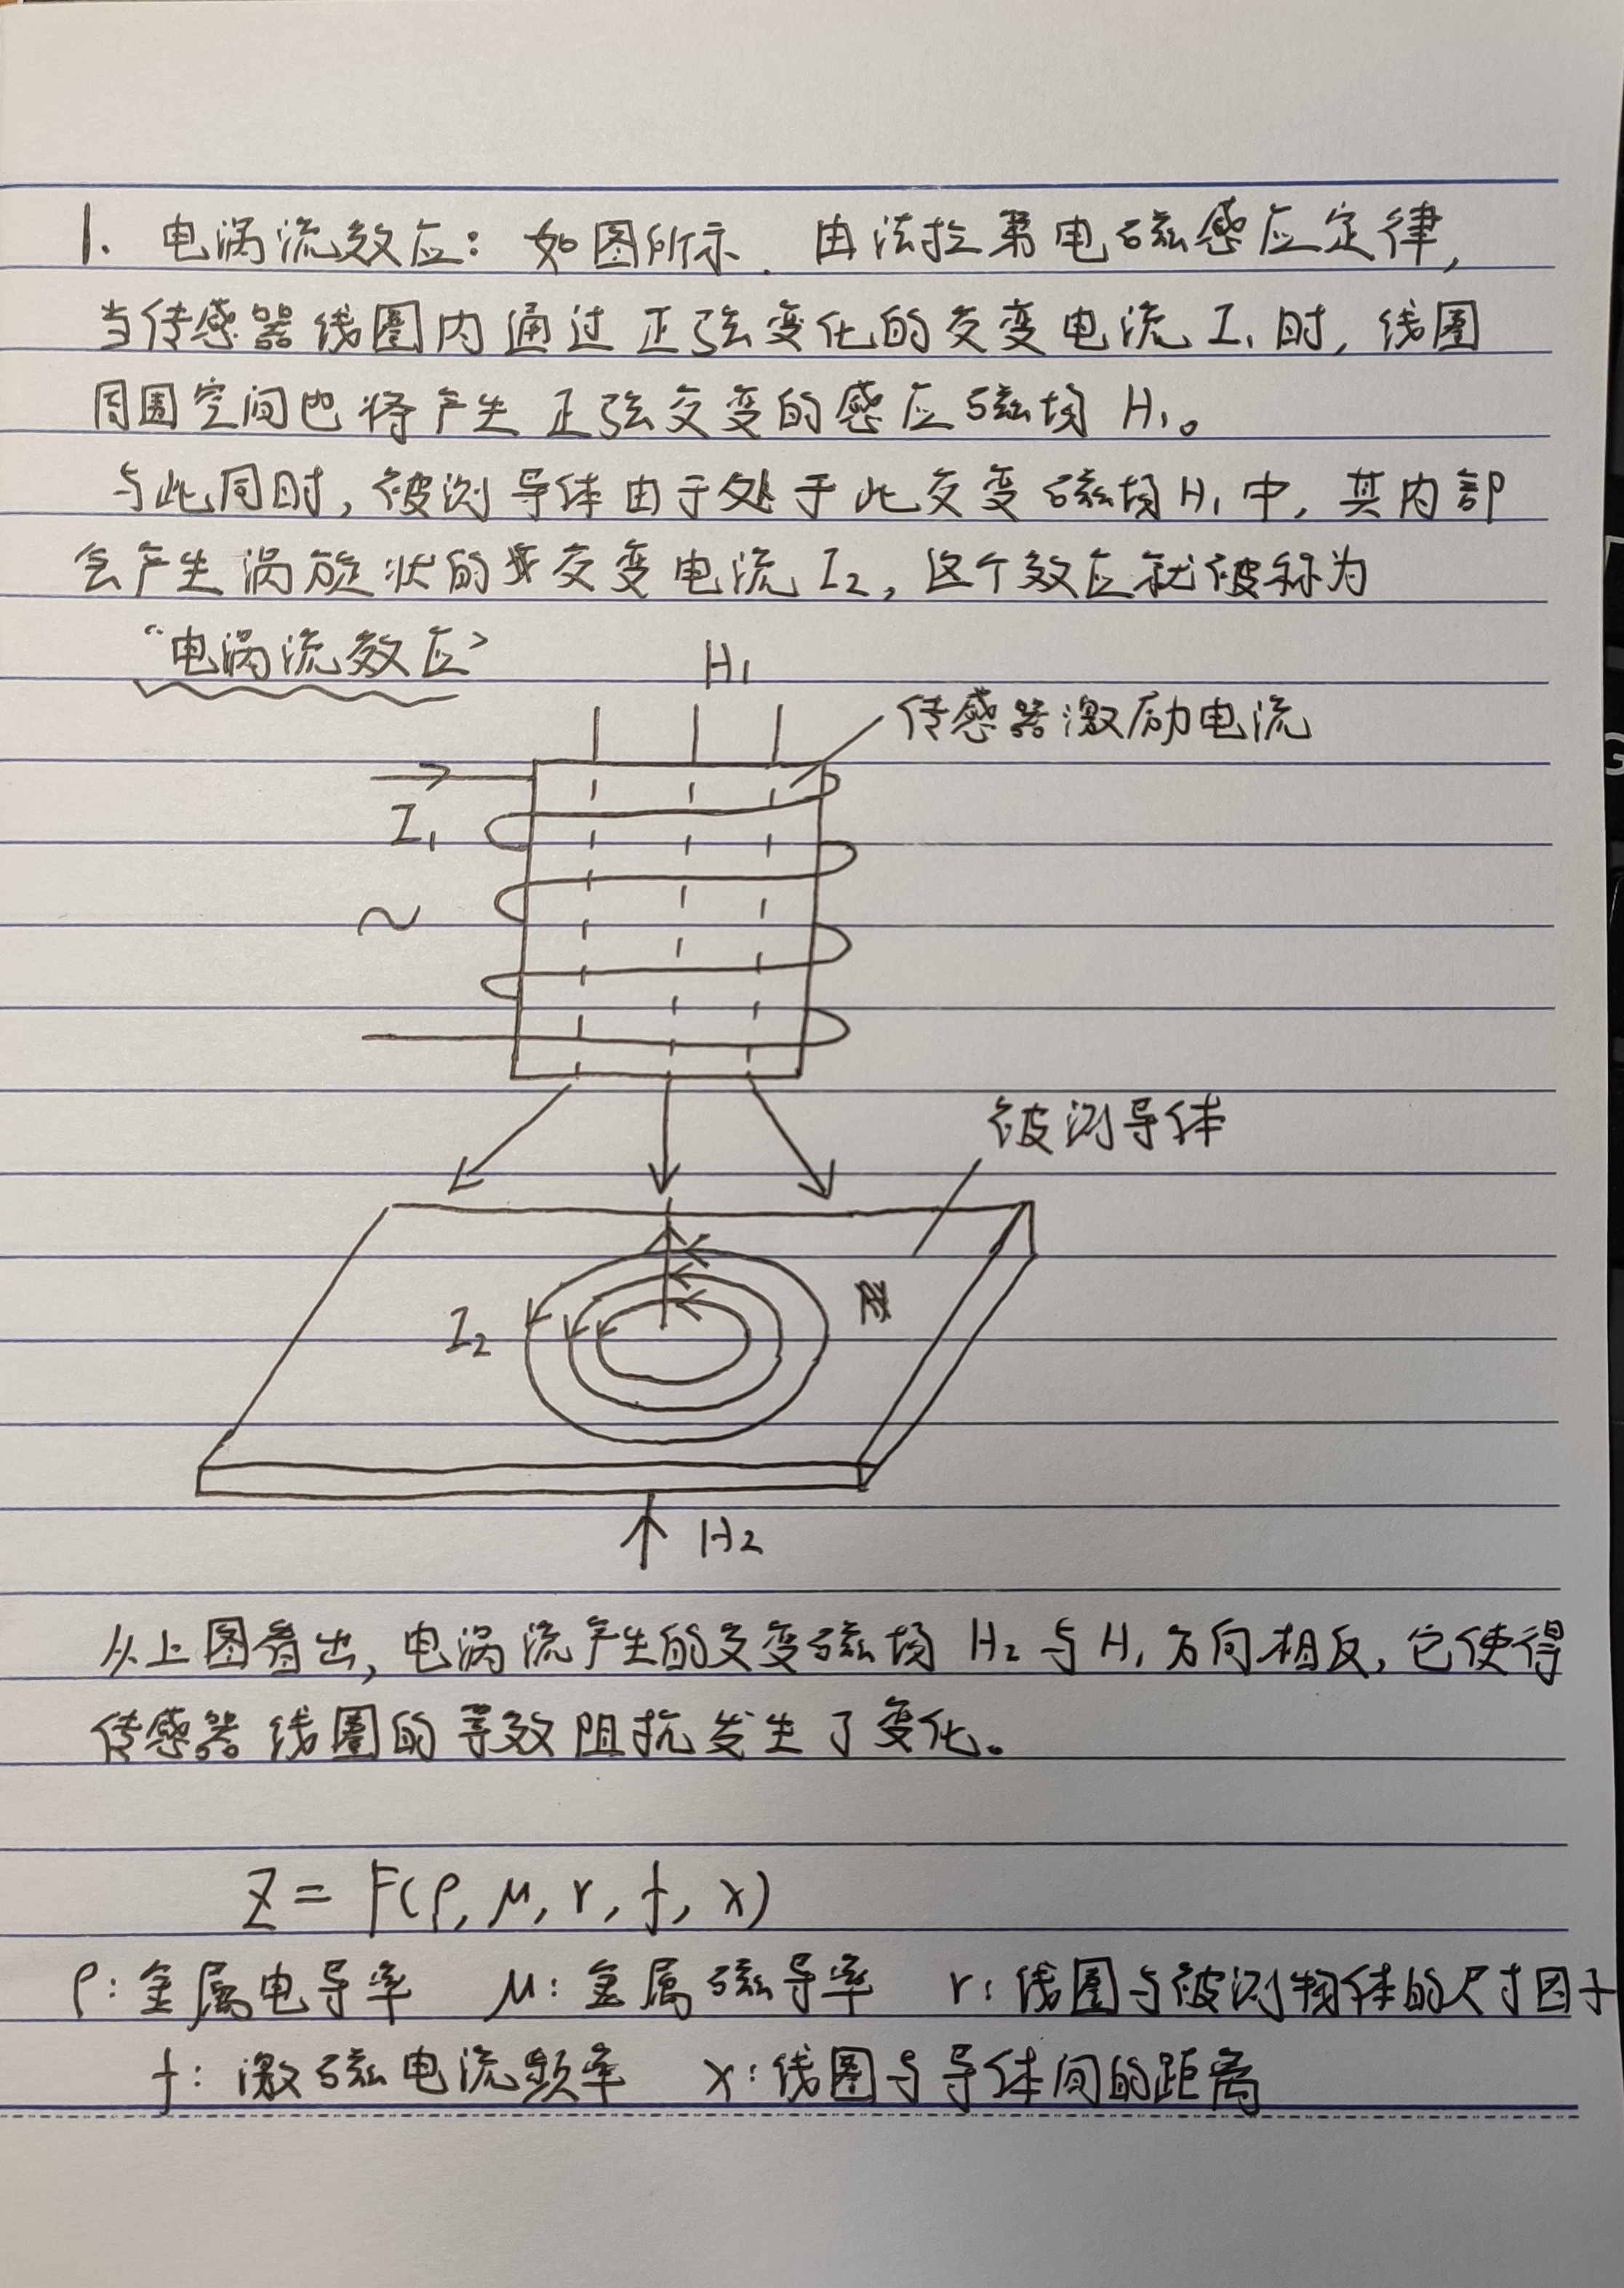 1. 电涡流效应：如图所示．由法拉第电磁感应定律，
当传感器线圈内通过正弦变化的交变电流I₁时，线圈
周围空间也将产生正弦交变的感应磁场H₁。
与此同时，被测导体由于处于此交变磁场H₁中，其内部
会产生涡旋状的交变电流I₂，这个效应就被称为
“电涡流效应”
H₁
传感器激励电流
I₁
~
被测导体
I₂
H₂
从上图看出，电涡流产生的交变磁场H₂与H₁方向相反，它使得
传感器线圈的等效阻抗发生了变化。
Z = F(ρ, μ, r, f, x)
ρ：金属电导率 μ：金属磁导率 r：线圈与被测物体的尺寸因子
f：激磁电流频率 x：线圈与导体间的距离